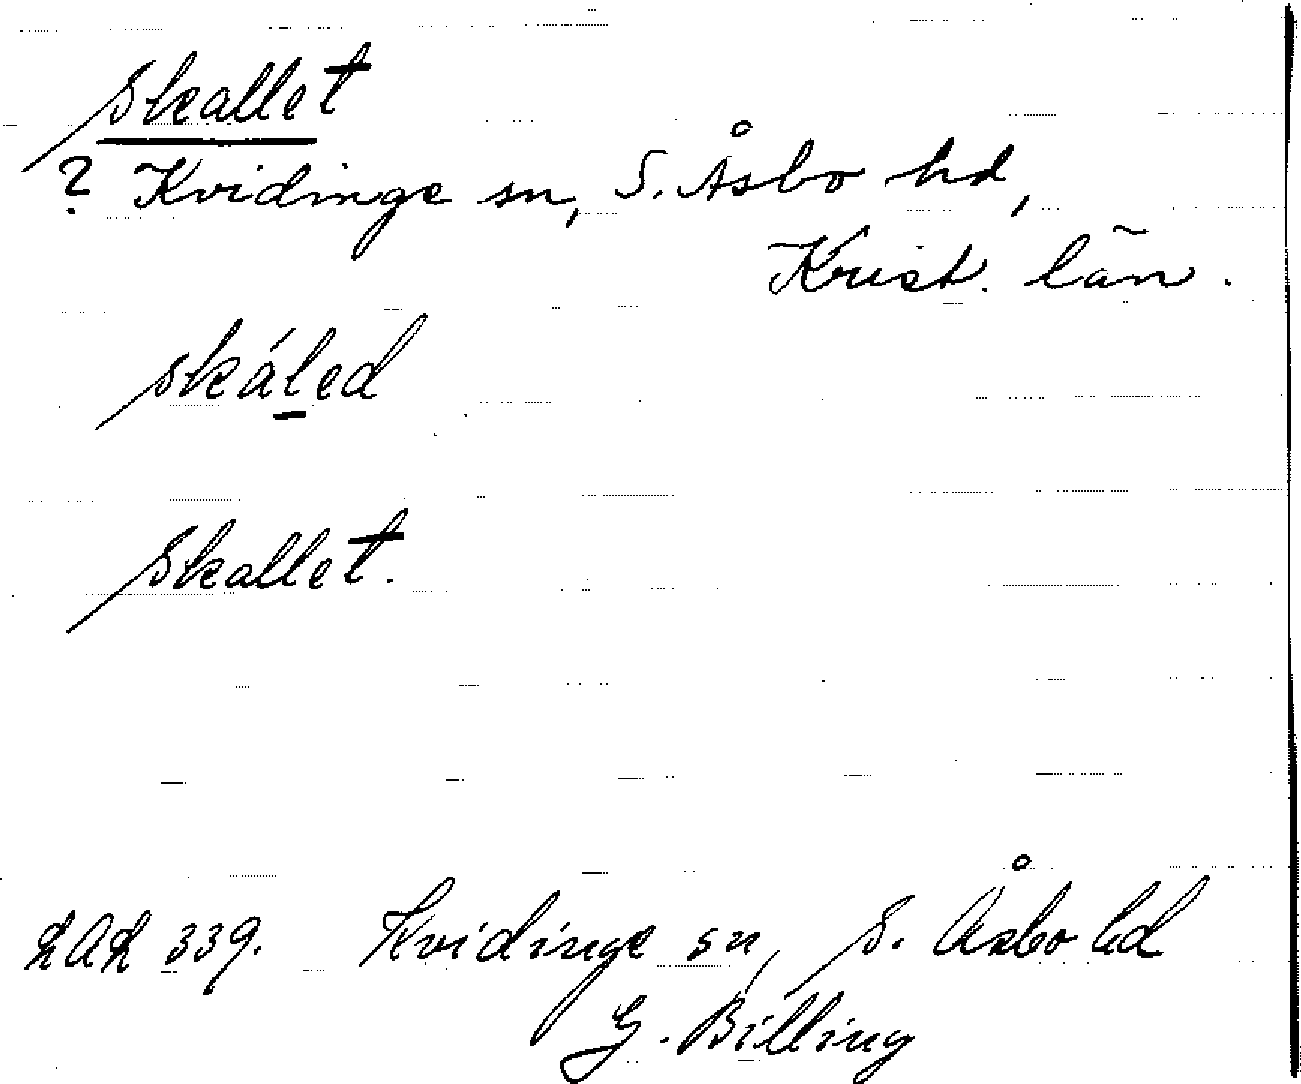 Skallet
? Kvidinge sn, S. Åsbo hd,
Krist. län.
skáled
Skallet.
LAL 339. Kvidinge sn, S. Åsbo hd
G. Billing